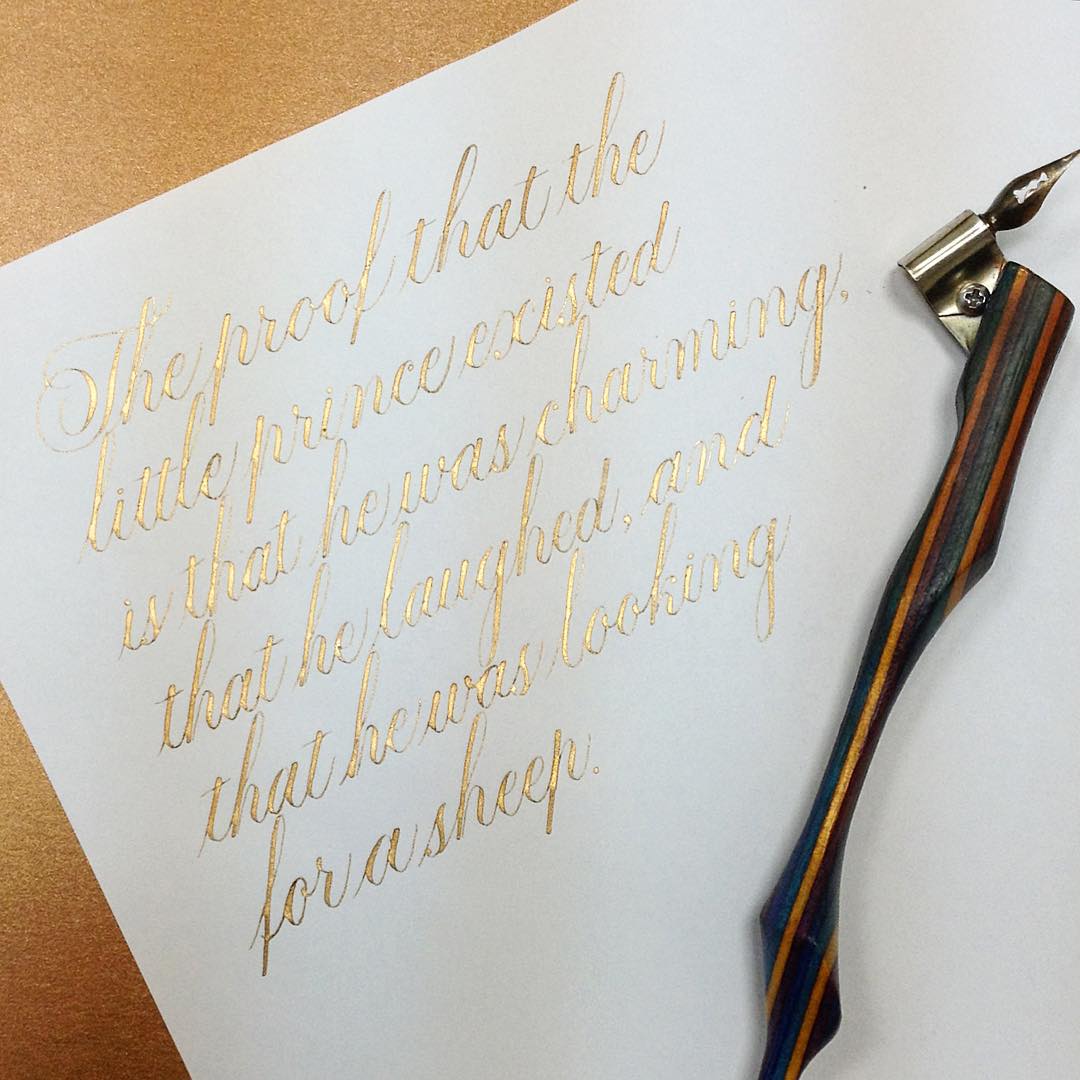 The proof that the
little prince existed
is that he was charming,
that he laughed, and
that he was looking
for a sheep.